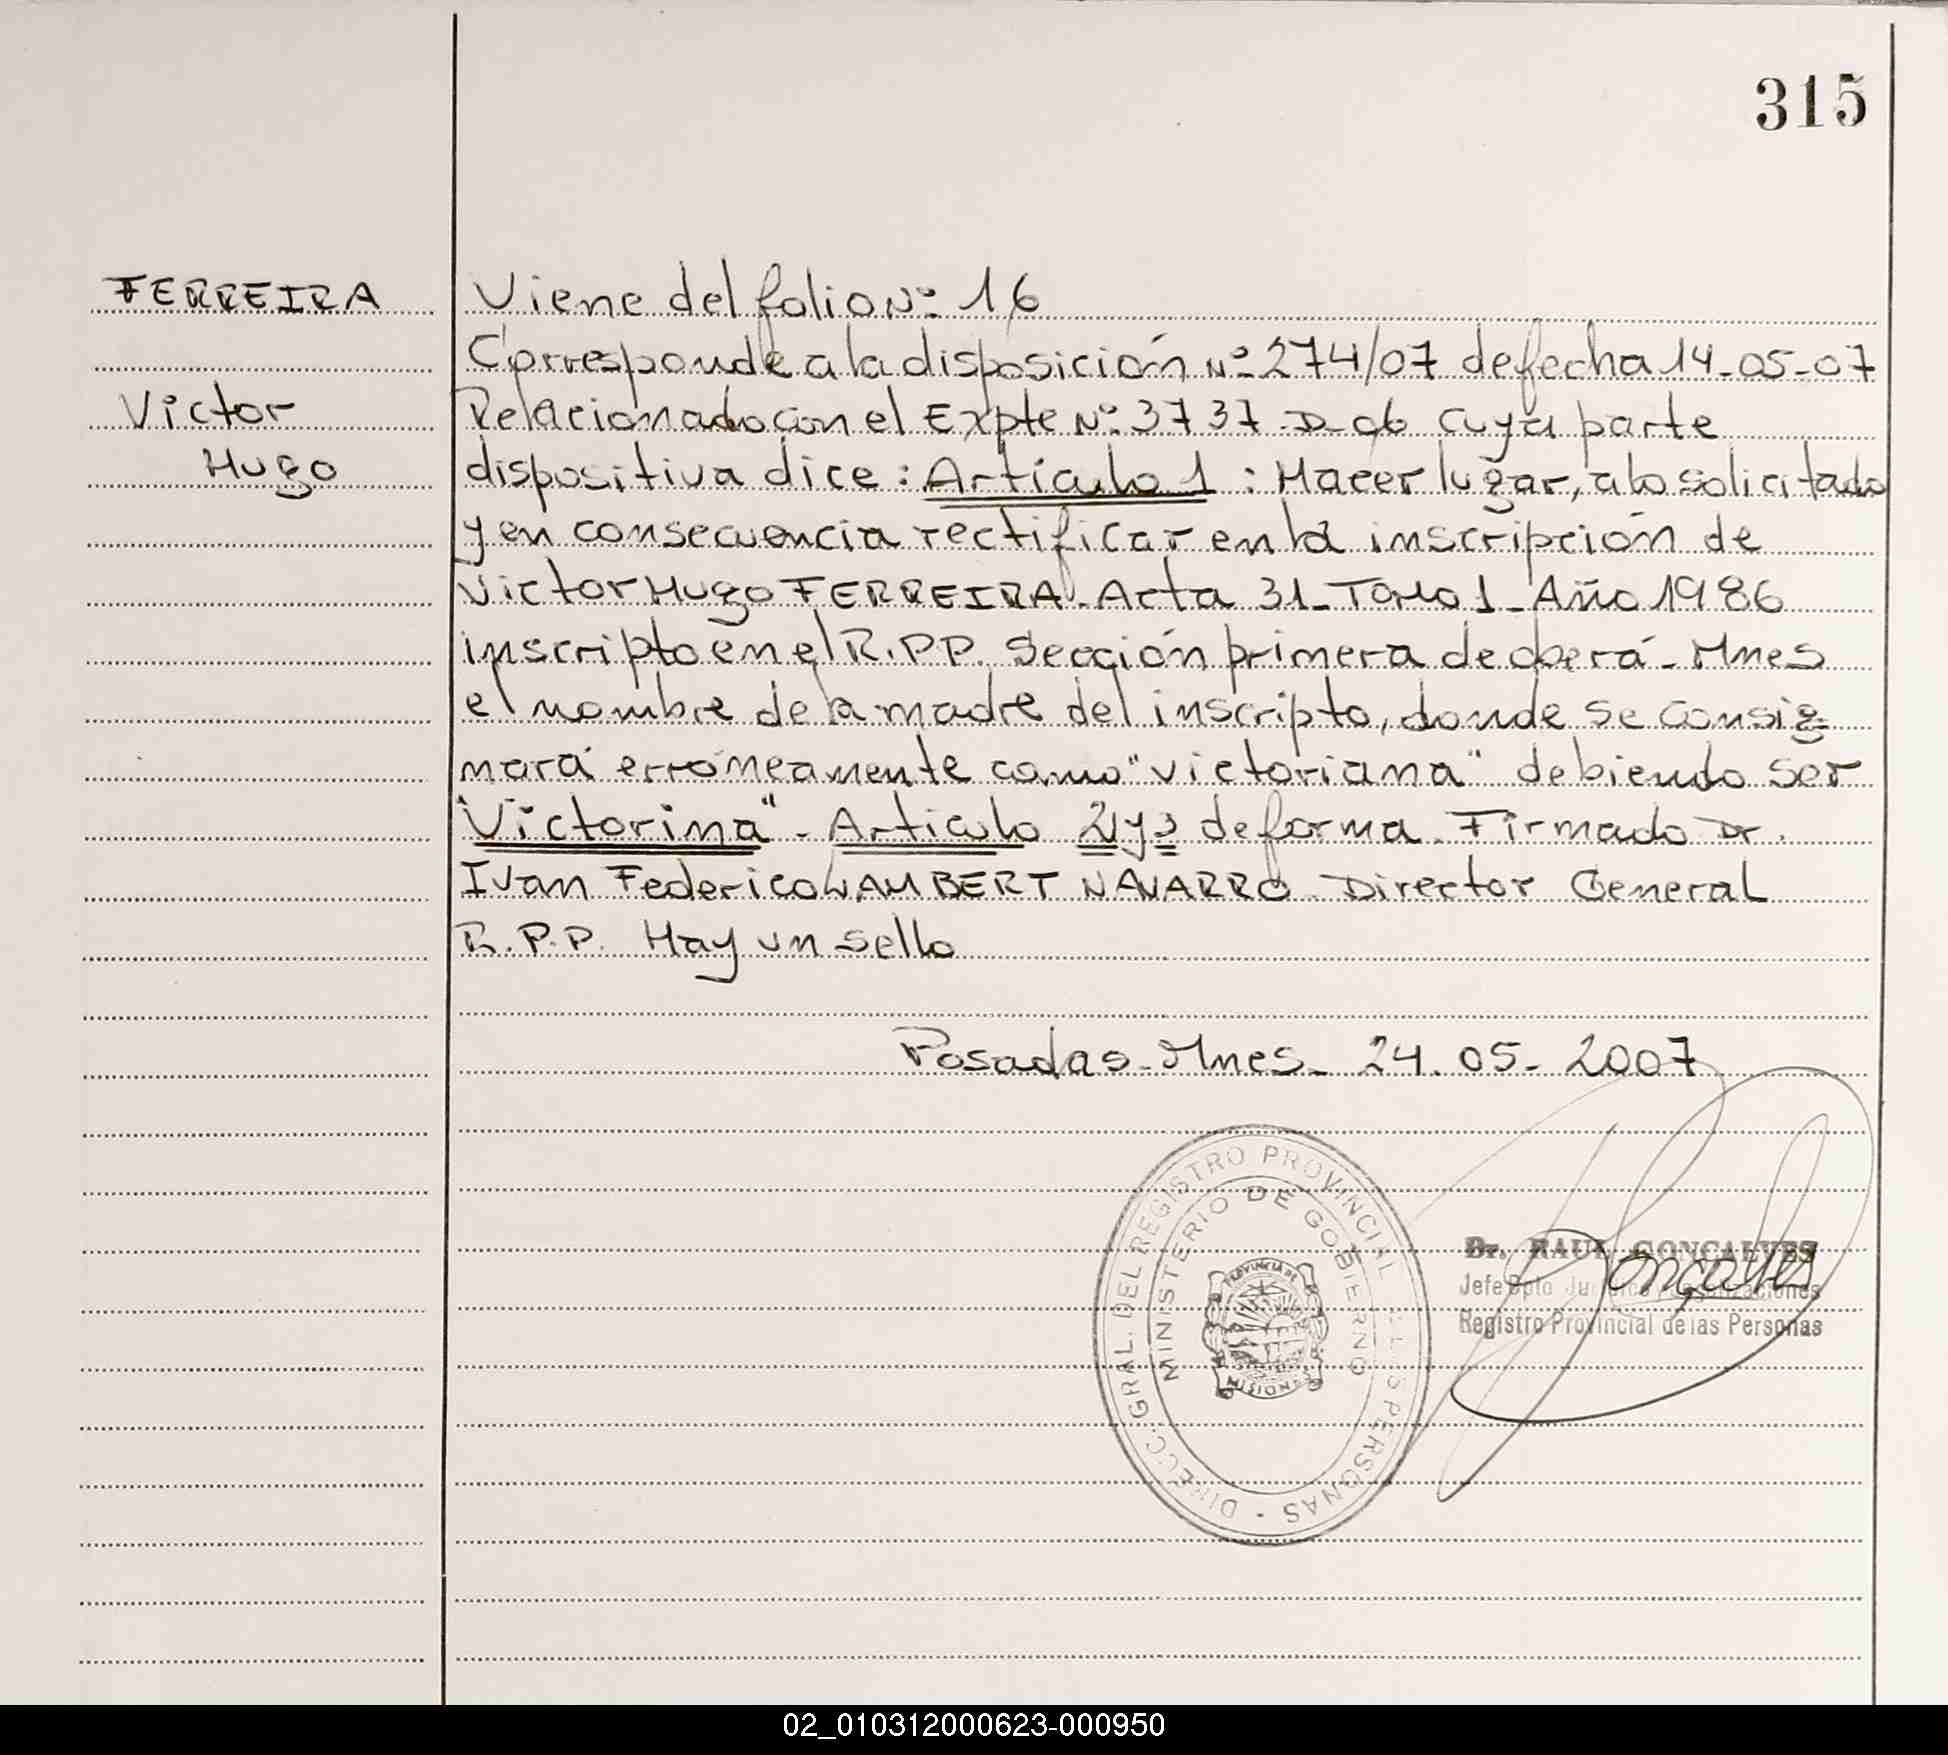 315
FERREIRA
Victor
Hugo
Viene del folio Nº 16
Corresponde a la disposición Nº 274/07 de fecha 14-05-07
Relacionado con el Expte Nº 3737-D-06 cuya parte
dispositiva dice: Artículo 1: Hacer lugar, a lo solicitado
y en consecuencia rectificar en la inscripción de
Victor Hugo FERREIRA. Acta 31-Tomo 1-Año 1986
inscripto en el R.P.P. Sección primera de oberá-Mnes
el nombre de la madre del inscripto, donde se consig-
nará erróneamente como "victoriana" debiendo ser
"Victorina"- Articulo 2 y 3 de forma. Firmado Dr.
Ivan Federico WAMBERT NAVARRO. Director General
R.P.P. Hay un sello
Posadas-Mnes- 24.05-2007
DIRECC. GRAL. DEL REGISTRO PROVINCIAL DE LAS PERSONAS
MINISTERIO DE GOBIERNO
PROVINCIA DE
MISIONES
Dr. RAUL GONÇALVES
Jefe Dpto
Registro Provincial de las Personas
Gonçalves
02_010312000623-000950